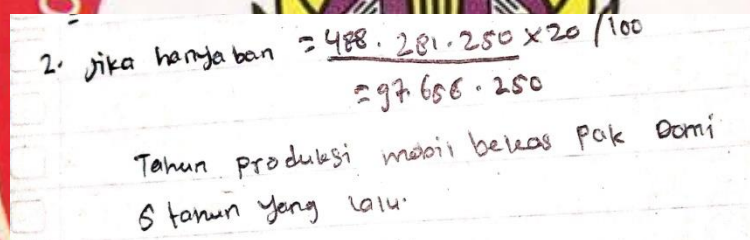 2. jika hanya ban = 488.281.250 x 20/100
= 97.656.250
Tahun produksi mobil bekas Pak Domi
6 tahun yang lalu.